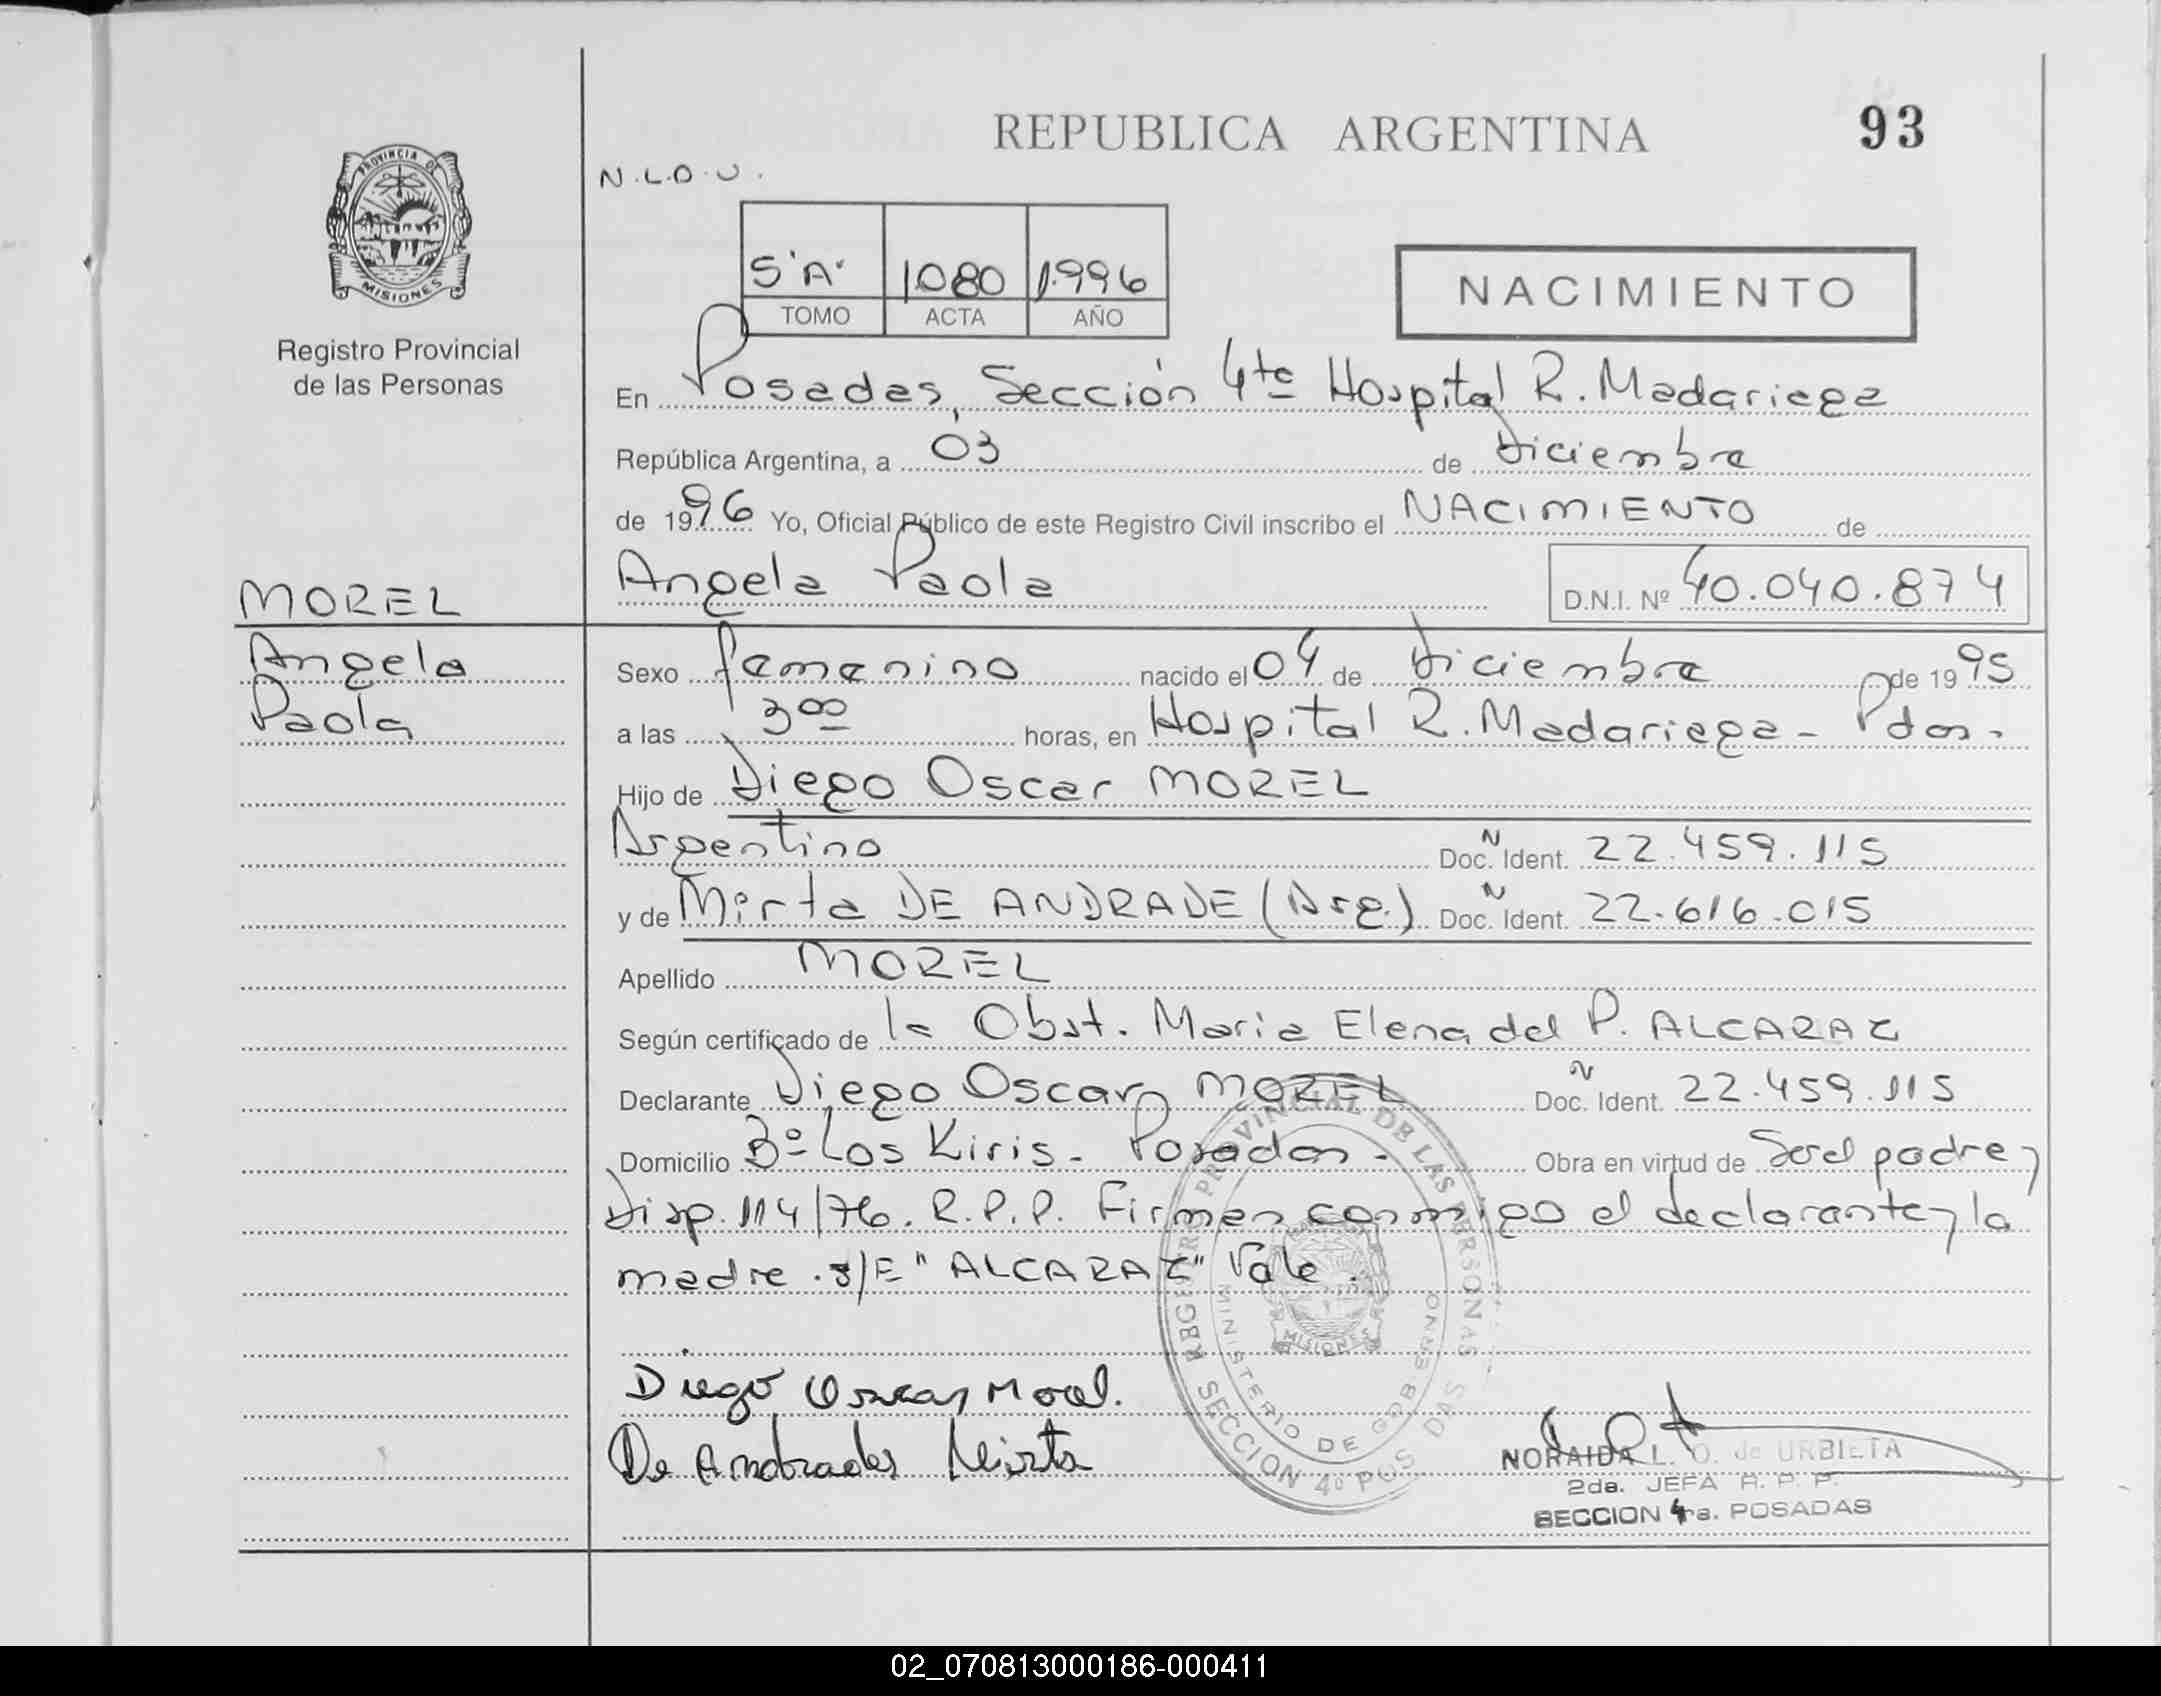 REPUBLICA ARGENTINA
93
PROVINCIA DE MISIONES
Registro Provincial
de las Personas
N.L.D.U.
5"A" 1080 1.996
TOMO ACTA AÑO
NACIMIENTO
En Posadas, Sección 4ta Hospital R. Madariaga
República Argentina, a 03 de Diciembre
de 1996 Yo, Oficial Público de este Registro Civil inscribo el NACIMIENTO de
Angela Paola D.N.I. Nº 40.040.874
MOREL
Angela
Paola
Sexo femenino nacido el 04 de Diciembre de 1995
a las 3 00 horas, en Hospital R. Madariaga - Pdas.
Hijo de Diego Oscar MOREL
Argentino Doc. Ident. N 22.459.115
y de Mirta DE ANDRADE (Arg.) Doc. Ident. N 22.616.015
Apellido MOREL
Según certificado de la Obst. Maria Elena del P. ALCARAZ
Declarante Diego Oscar MOREL Doc. Ident. N 22.459.115
Domicilio Bº Los Kiris - Posadas. Obra en virtud de Ser el padre y
Disp. 114/76. R.P.P. Firman conmigo el declarante y la
madre. s/E "ALCARAZ" Vale.
REGISTRO PROVINCIAL DE LAS PERSONAS
MINISTERIO DE GOBIERNO
MISIONES
SECCION 4º POSADAS
Diego Oscar Morel.
De Andrade Mirta
NORAIDA L. O. de URBIETA
2da. JEFA R. P. P.
SECCION 4ra. POSADAS
02_070813000186-000411